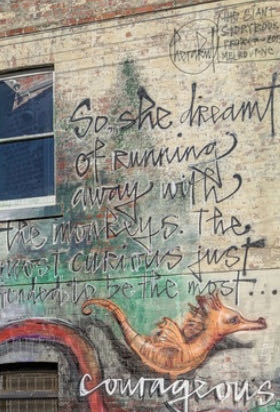 THE GIANT
STORYBOOK
PROJECT
MELBOURNE
So, she dreamt
of running
away with
the monkeys. The
most curious just
tended to be the most...
courageous